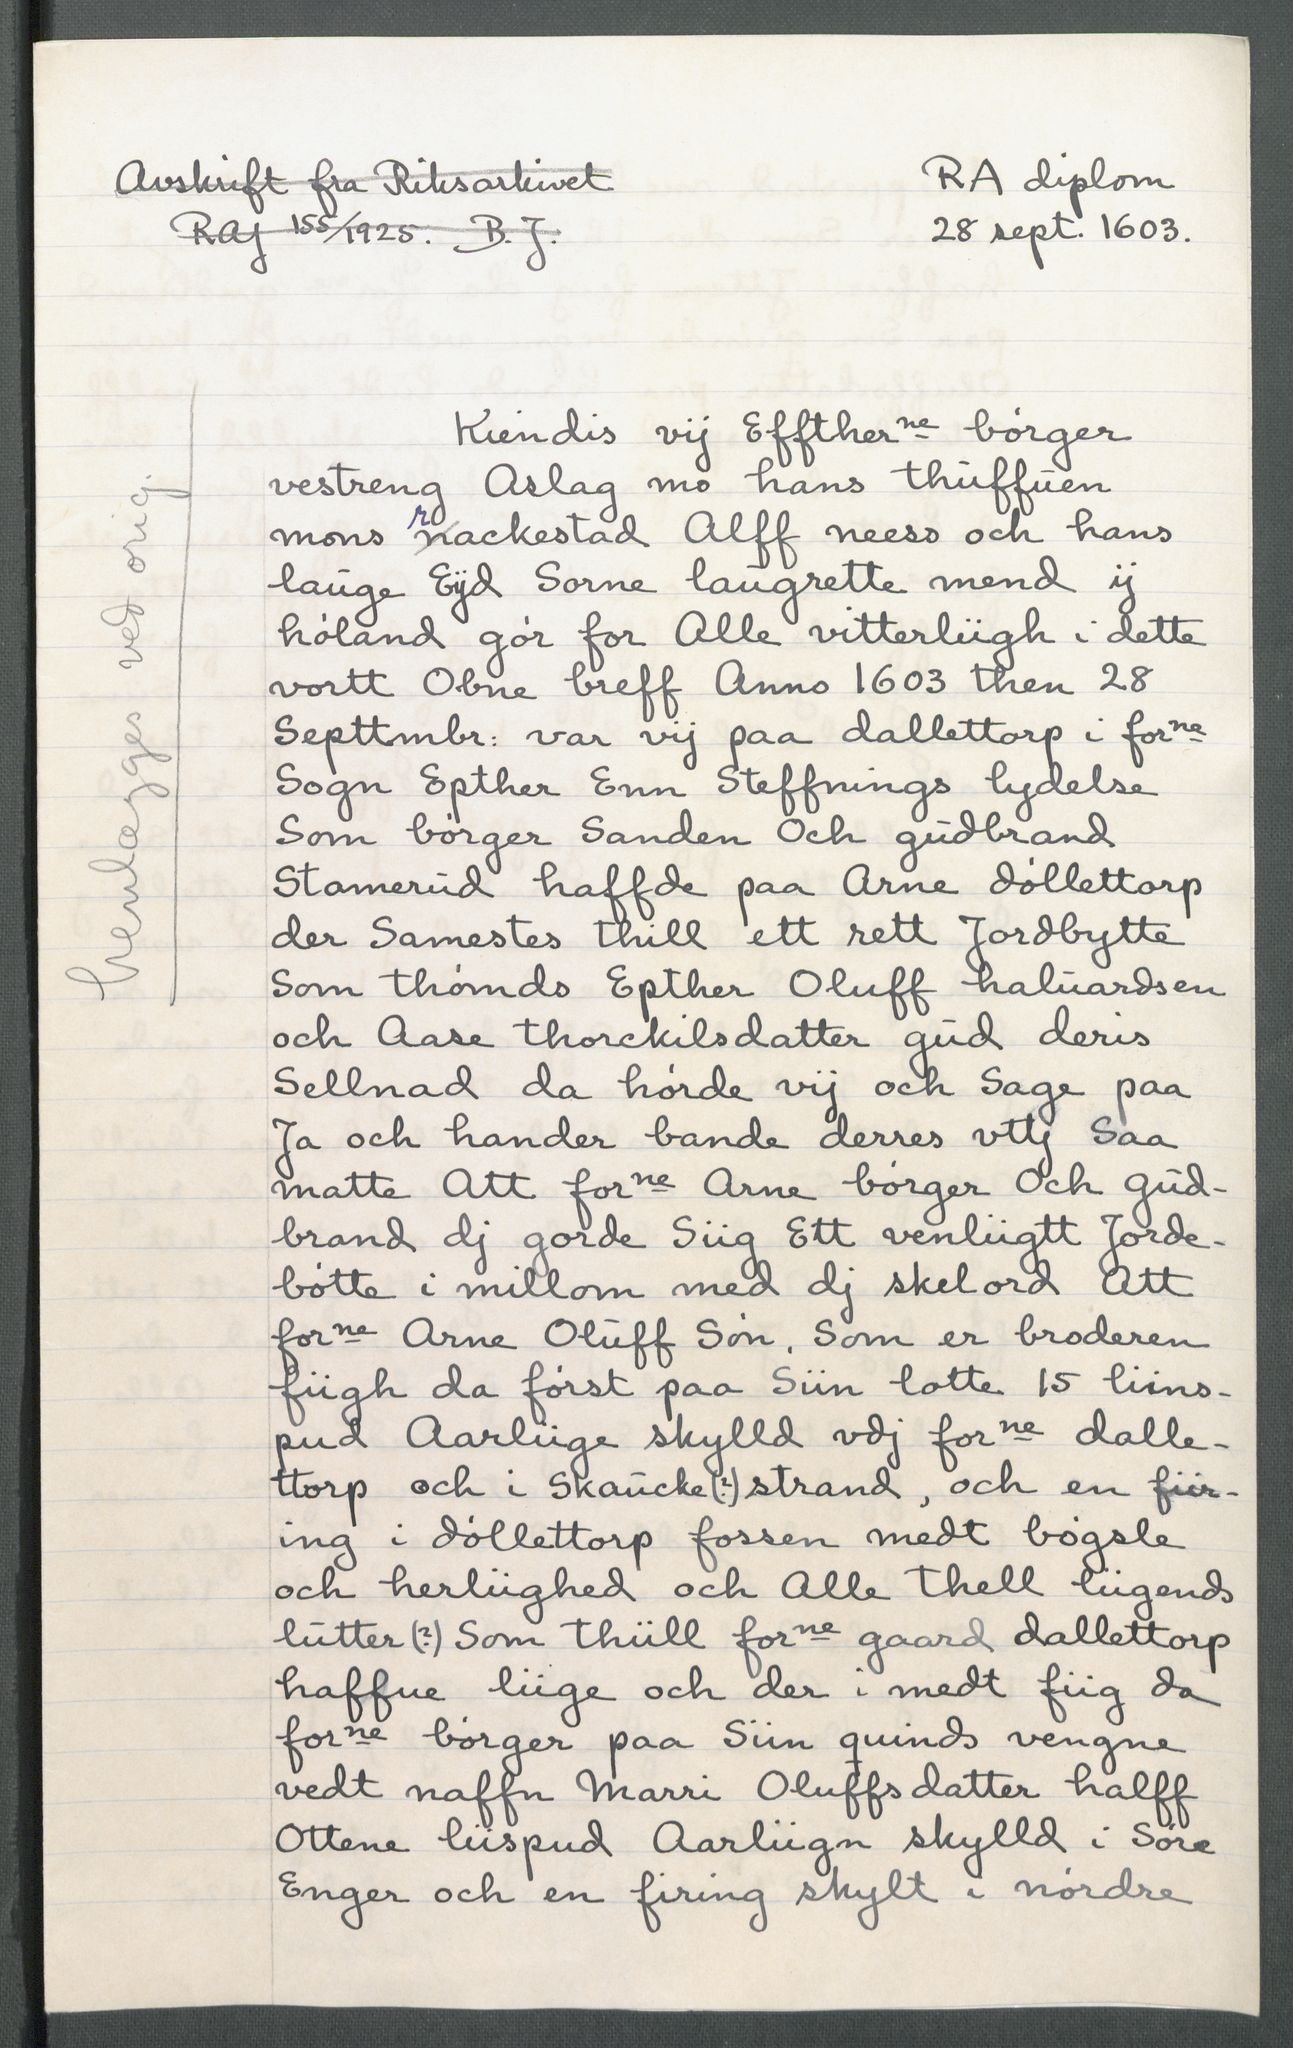 Avskrift fra Riksarkivet
RAJ 155/1925. B. J.
RA diplom
28 sept. 1603.
henlægges ved orig.
Kiendis vij Effther<sup>ne</sup> bórger
vestreng Aslag mo hans thuffuen
mons rackestad Alff neess och hans
lauge Eÿd Sorne laugrette mend ij
hóland gór for Alle vitterliigh i dette
vortt Obne breff Anno 1603 then 28
Septtmbr: var vij paa dallettorp i for<sup>ne</sup>
Sogn Epther Enn Steffnings lydelse
Som bórger Sanden Och gudbrand
Stamerud haffde paa Arne dóllettorp
der Samestes thill ett rett Jordbytte
Som thómds Epther Oluff haluardsen
och Aase thorckilsdatter gud deris
Sellnad da hórde vij och Sage paa
Ja och hander bande derres vttj Saa
matte Att for<sup>ne</sup> Arne bórger Och gud-
brand dj gorde Siig Ett venliigtt Jorde-
bótte i millom med dj skelord Att
for<sup>ne</sup> Arne Oluff Són, Som er broderen
fiigh da fórst paa Siin lotte 15 liins-
pud Aarliige skylld vdj for<sup>ne</sup> dalle-
ttorp och i Skaucke(?)strand, och en fiir-
ing i dóllettorp fossen medt bógsle
och herliighed och Alle thell liigends
lutter(?) Som thiill for<sup>ne</sup> gaard dallettorp
haffue liige och der i medt fiig da
for<sup>ne</sup> bórger paa Siin quinds vengne
vedt naffn Marri Oluffsdatter halff
Ottene liispud Aarliign skylld i Sóre
Enger och en firing skylt i nórdre